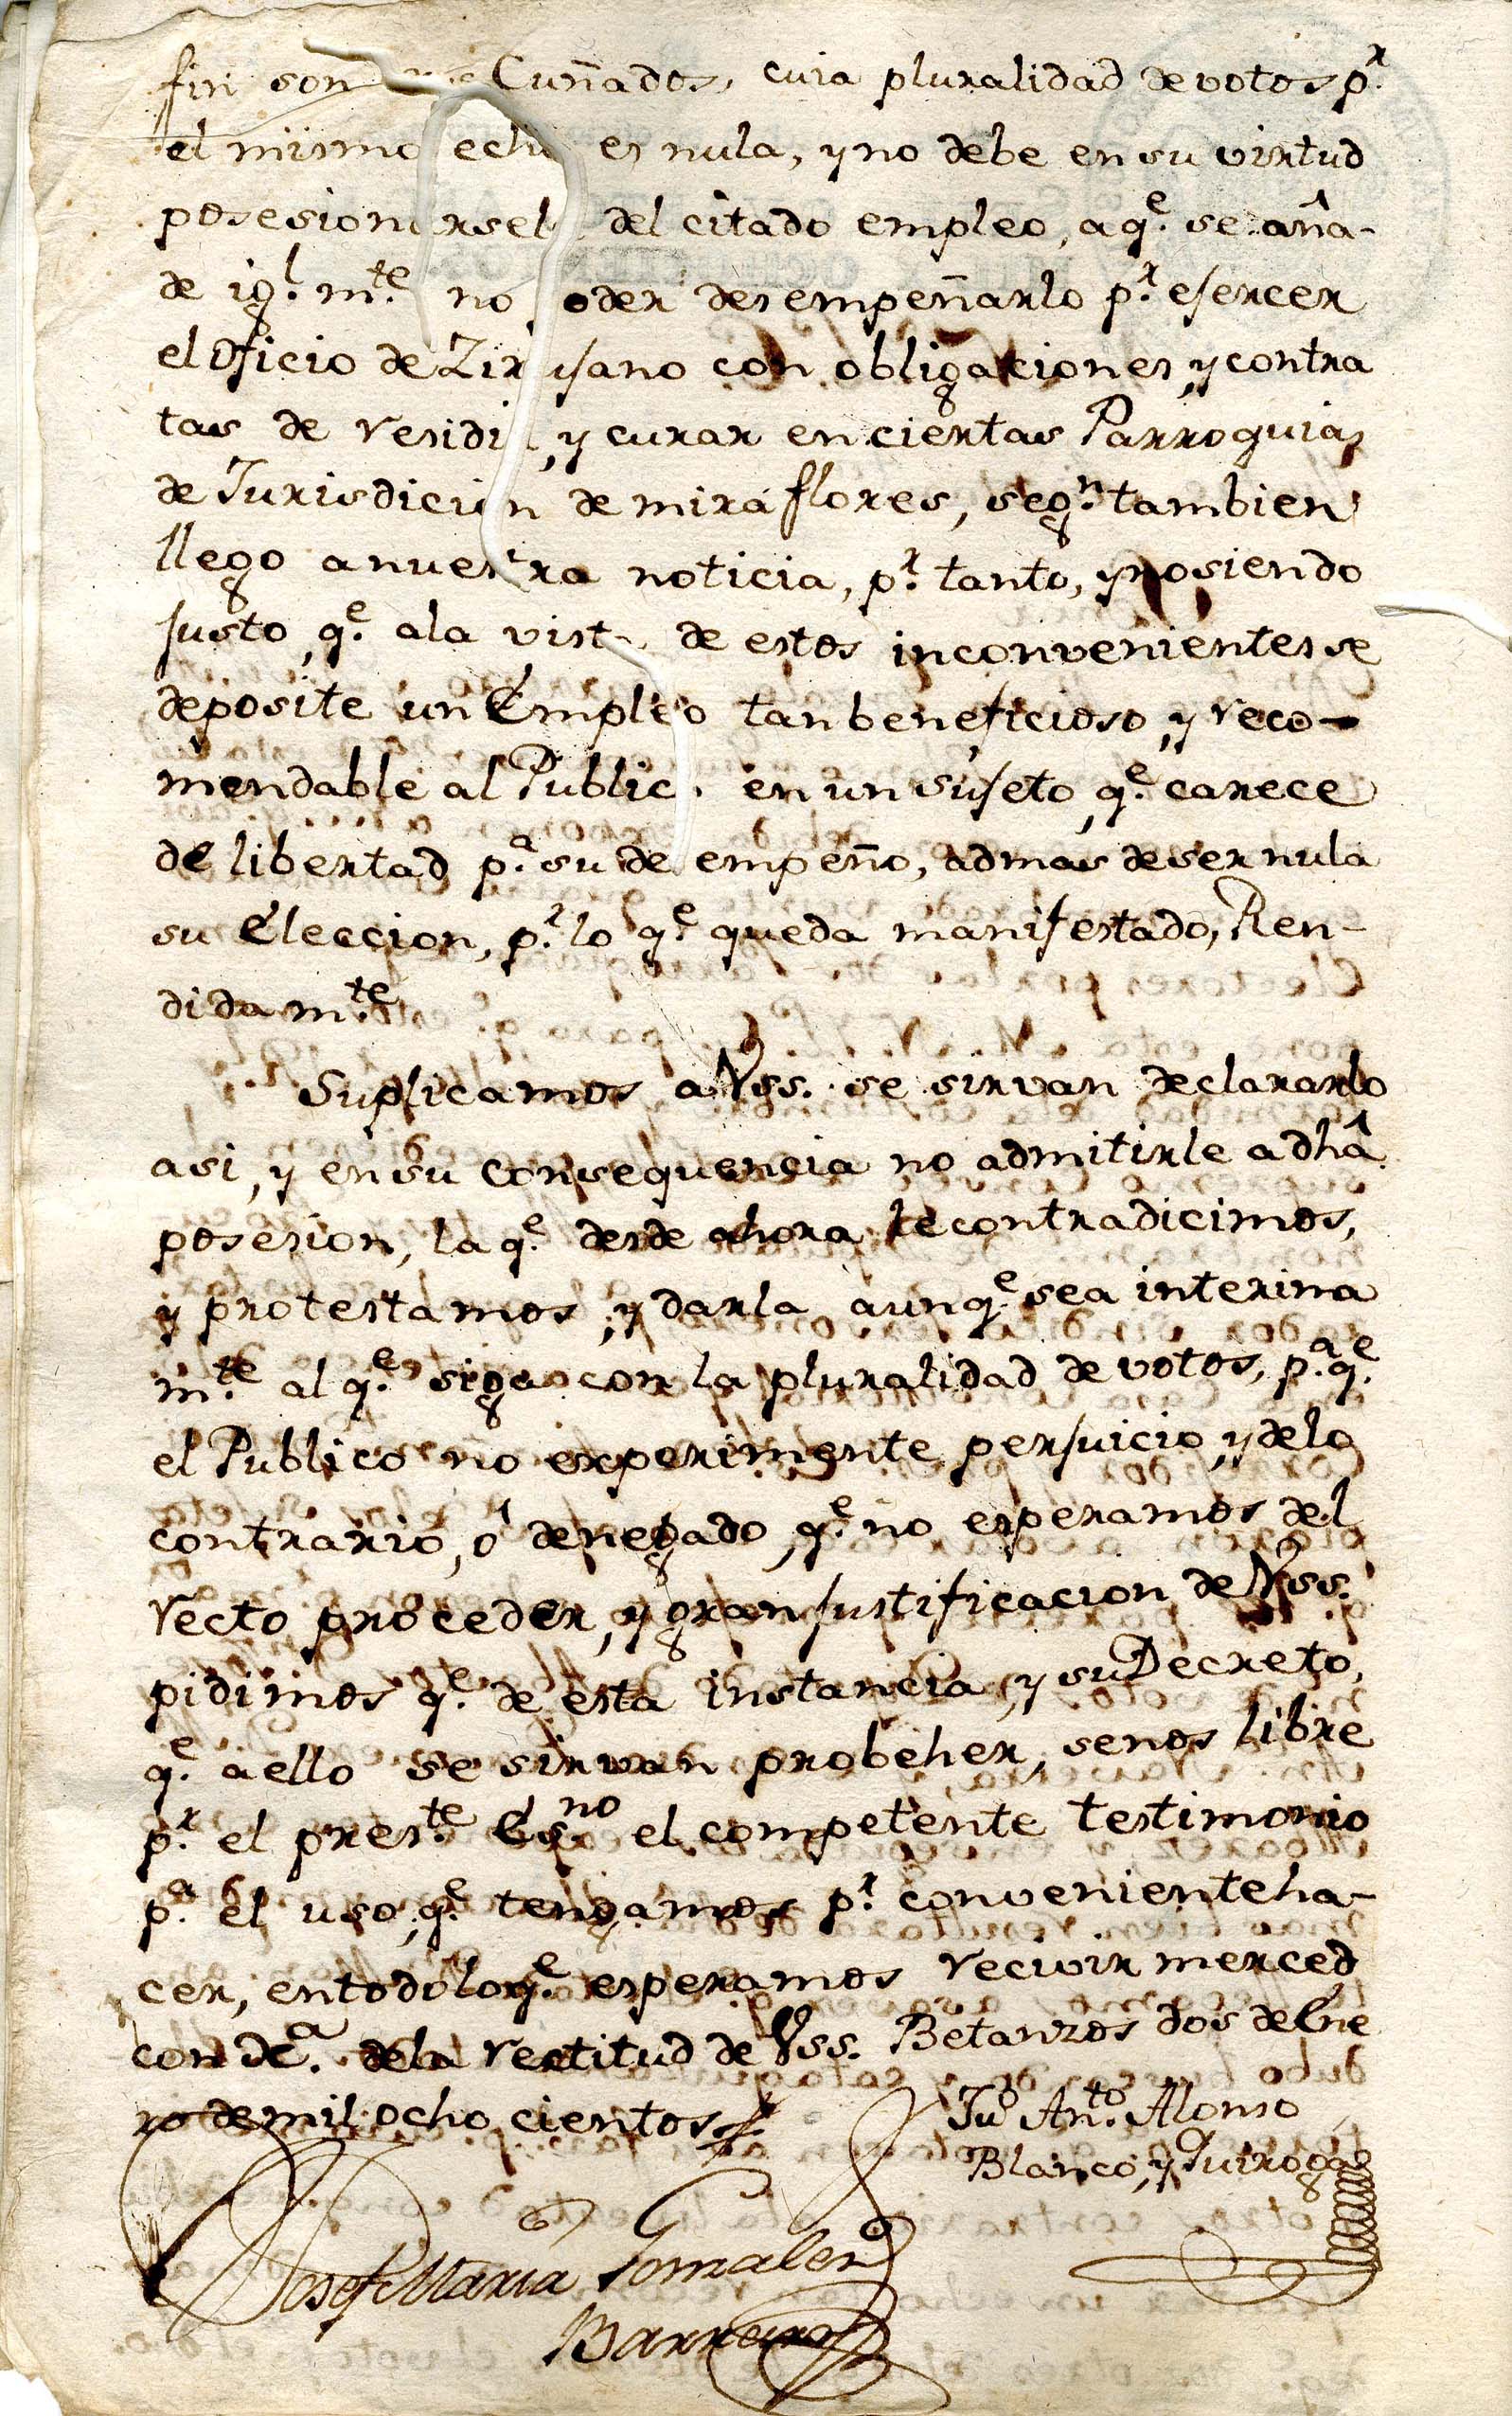 fin son Cuñados, cuia pluralidad de votos p.r
el mismo echo es nula, y no debe en su virtud
posesionarsele del citado empleo, a q.e se aña-
de ig.l m.te no poder desempeñarlo p.r ejercer
el Oficio de Zirujano con obligaciones, y contra
tas de residir, y curar en ciertas Parroquias
de Jurisdicion de miraflores, seg.n tambien
llego a nuestra noticia, p.r tanto, y no siendo
justo, q.e a la vista de estos inconvenientes se
deposite un Empleo tan beneficioso, y reco-
mendable al Publico en un sujeto, q.e carece
de libertad p.a su desempeño, admas de ser nula
su Eleccion, p.r lo q.e queda manifestado, Ren-
didam.te
Suplicamos a Vss. se sirvan declararlo
asi, y en su consequencia no admitirle a dha
posesion, la q.e desde ahora le contradicimos,
y protestamos, y darla aunq.e sea interina
m.te al q.e siga con la pluralidad de votos, p.a q.e
el Publico no experimente perjuicio, y de lo
contrario, ó denegado, q.e no esperamos del
recto proceder, y gran justificacion de Vss.
pidimos q.e de esta instancia, y su Decreto,
q.e a ello se sirvan probeher, se nos libre
p.r el pres.te Es.no el competente testimonio
p.a el uso, q.e tengamos p.r conveniente ha-
cer, en todo lo q.e esperamos recivir merced
con Jc.a de la rectitud de Vss. Betanzos dos de Ene
ro de mil ocho cientos
Ju.o An.to Alonso
Blanco, y Quiroga
Josef Maria Gonzalez
Barreiro